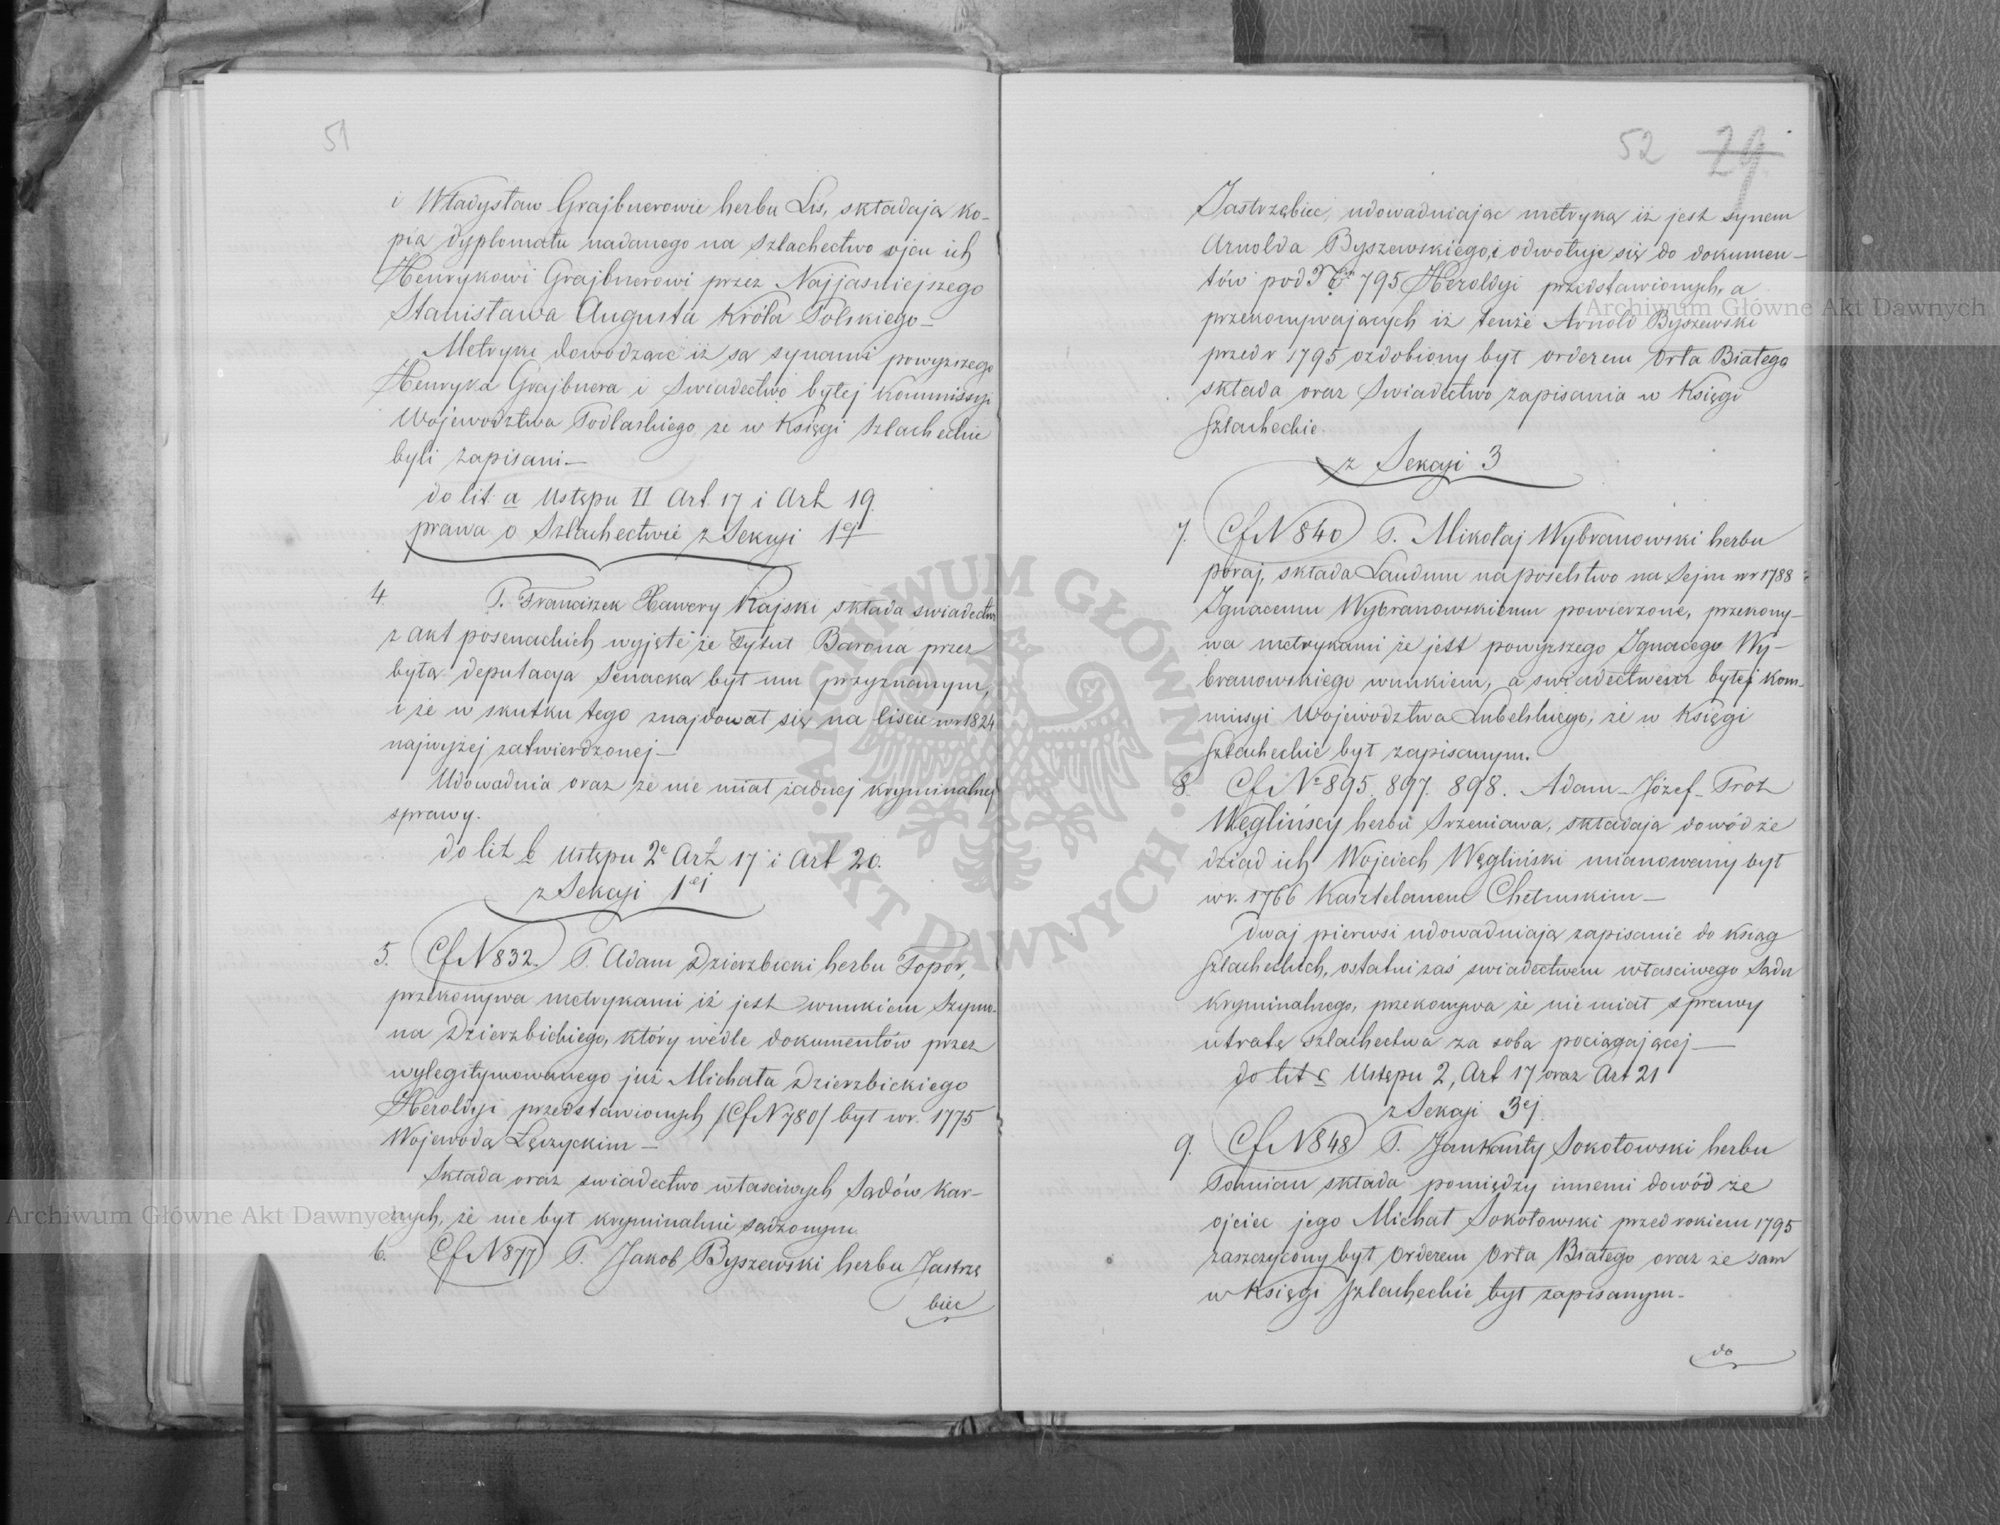 51
i Władysław Grajbnerowie herbu Lis, składają ko-
pią dyplomatu nadanego na szlachectwo ojcu ich
Henrykowi Grajbnerowi przez Najjaśniejszego
Stanisława Augusta Króla Polskiego—
Metryki dowodzące iż są synami powyższego
Henryka Grajbnera i Swiadectwo byłej Kommissyi
Województwa Podlaskiego, ze w Księgi szlacheckie
byli zapisani—
do lit a Ustępu II Art. 17 i Art 19.
prawa o Szlachectwie z Sekcyi 1ej
4. P. Franciszek Xawery Rajski składa swiadectwo
z akt posenackich wyjęte że Tytuł Barona przez
byłą deputacyą Senacką był mu przyznanym,
i że w skutku tego znajdował się na liscie w r 1824
najwyżej zatwierdzonej—
Udowadnia oraz że nie miał żadnej kryminalnej
sprawy.
do lit b Ustępu 2o Art 17 i Art 20.
z Sekcyi 1ej
5. Cf N 832. P. Adam Dzierzbicki herbu Topor,
przekonywa metrykami iż jest wnukiem Szymo-
na Dzierzbickiego, który wedle dokumentów przez
wylegitymowanego już Michała Dzierzbickiego
Heroldyi przedstawionych /Cf N 780/ był w r. 1775
Wojewodą Łęczyckim—
Składa oraz swiadectwo własciwych Sądów Kar-
nych, że nie był kryminalnie sądzonym
6. Cf N 877 P. Jakob Byszewski herbu Jastrzę
biec
52 29.
Jastrzębiec, udowadniając metryką iż jest synem
Arnolda Byszewskiego, i odwołuje się do dokumen-
tów pod 795 Heroldyi przedstawionych, a
przekonywających iż tenże Arnold Byszewski
przed r 1795 ozdobiony był orderem Orła Białego
składa oraz Swiadectwo zapisania w Księgi
Szlacheckie.
z Sekcyi 3
7. Cf N 840 P. Mikołaj Wybranowski herbu
poraj, składa Laudum na poselstwo na Sejm w r 1788
Ignacemu Wybranowskiemu powierzone, przekony-
wa metrykami że jest powyższego Ignacego Wy-
branowskiego wnukiem, a swiadectwem byłej Kom-
missyi Województwa Lubelskiego, że w Księgi
Szlacheckie był zapisanym.
8. Cf No 895. 897. 898. Adam - Józef - Prot
Węglińscy herbu Srzeniawa, składają dowód że
dziad ich Wojciech Węgliński mianowany był
w r. 1766 Kasztelanem Chełmskim—
Dwaj pierwsi udowadniają zapisanie do ksiąg
Szlacheckich, ostatni zaś swiadectwem własciwego Sądu
kryminalnego, przekonywa że nie miał sprawy
utratę szlachectwa za sobą pociągającej—
do lit c Ustępu 2, Art 17 oraz Art 21
z Sekcyi 3ej
9. Cf N 848 P. Jankanty Sokołowski herbu
Pomian składa pomiędzy innemi dowód że
ojciec jego Michał Sokołowski przed rokiem 1795
zaszczycony był Orderem Orła Białego oraz że sam
w Księgi Szlacheckie był zapisanym.
do
Archiwum Główne Akt Dawnych
Archiwum Główne Akt Dawnych
ARCHIWUM GŁÓWNE
AKT DAWNYCH